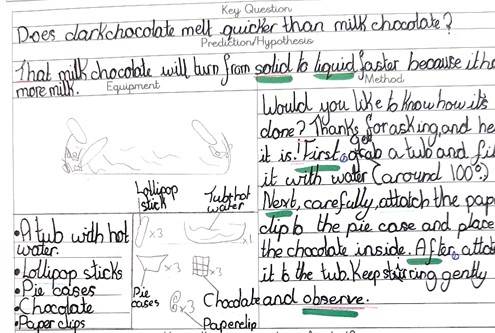 Key Question
Does darkchocolate melt quicker than milk chocolate?
Prediction/Hypothesis
That milk chocolate will turn from solid to liquid faster because it ha
more milk.
Equipment
Lollipop
stick
Tub+hot
water
• A tub with hot
water.
• Lollipop sticks
• Pie cases
• Chocolate
• Paper clips
x3
x1
x3
x3
Pie
cases
x3
Chocolate
Paperclip
Method
Would you like to know how it's
done? Thanks for asking, and he
it is! First, grab a tub and fil
it with water (around 100°.)
Next, carefully, attatch the pap
clip to the pie case and place
the chocolate inside. After, attat
it to the tub. Keep stirring gently
and observe.